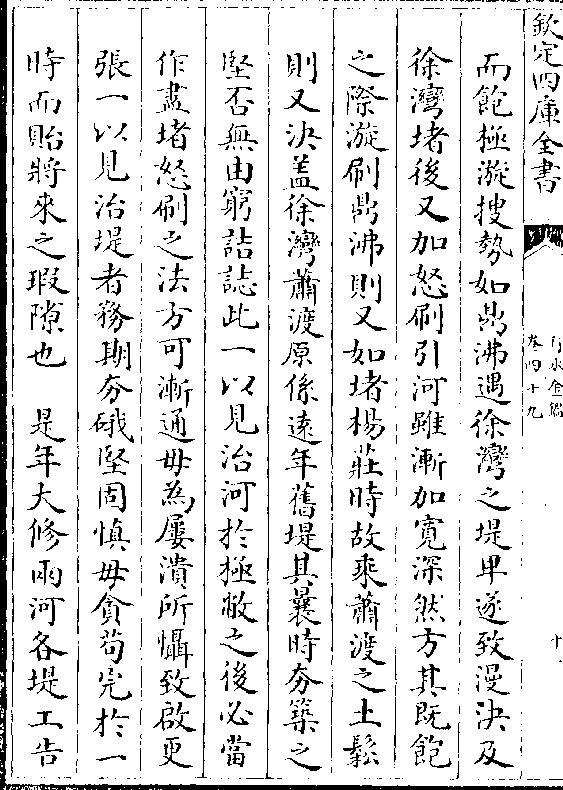 欽定四庫全書
行水金鑑
卷四十九
十一
而飽極漩搜勢如鼎沸遇徐灣之堤卑遂致漫決及
徐灣堵後又加怒刷引河雖漸加寬深然方其既飽
之際漩刷鼎沸則又如堵楊莊時故乘蕭渡之土鬆
則又決蓋徐灣蕭渡原係遠年舊堤其曩時夯築之
堅否無由窮詰誌此一以見治河於極敝之後必當
作盡堵怒刷之法方可漸通毋為屢潰所懾致啟更
張一以見治堤者務期夯硪堅固慎毋貪苟完於一
時而貽將來之瑕隙也　是年大修兩河各堤工告